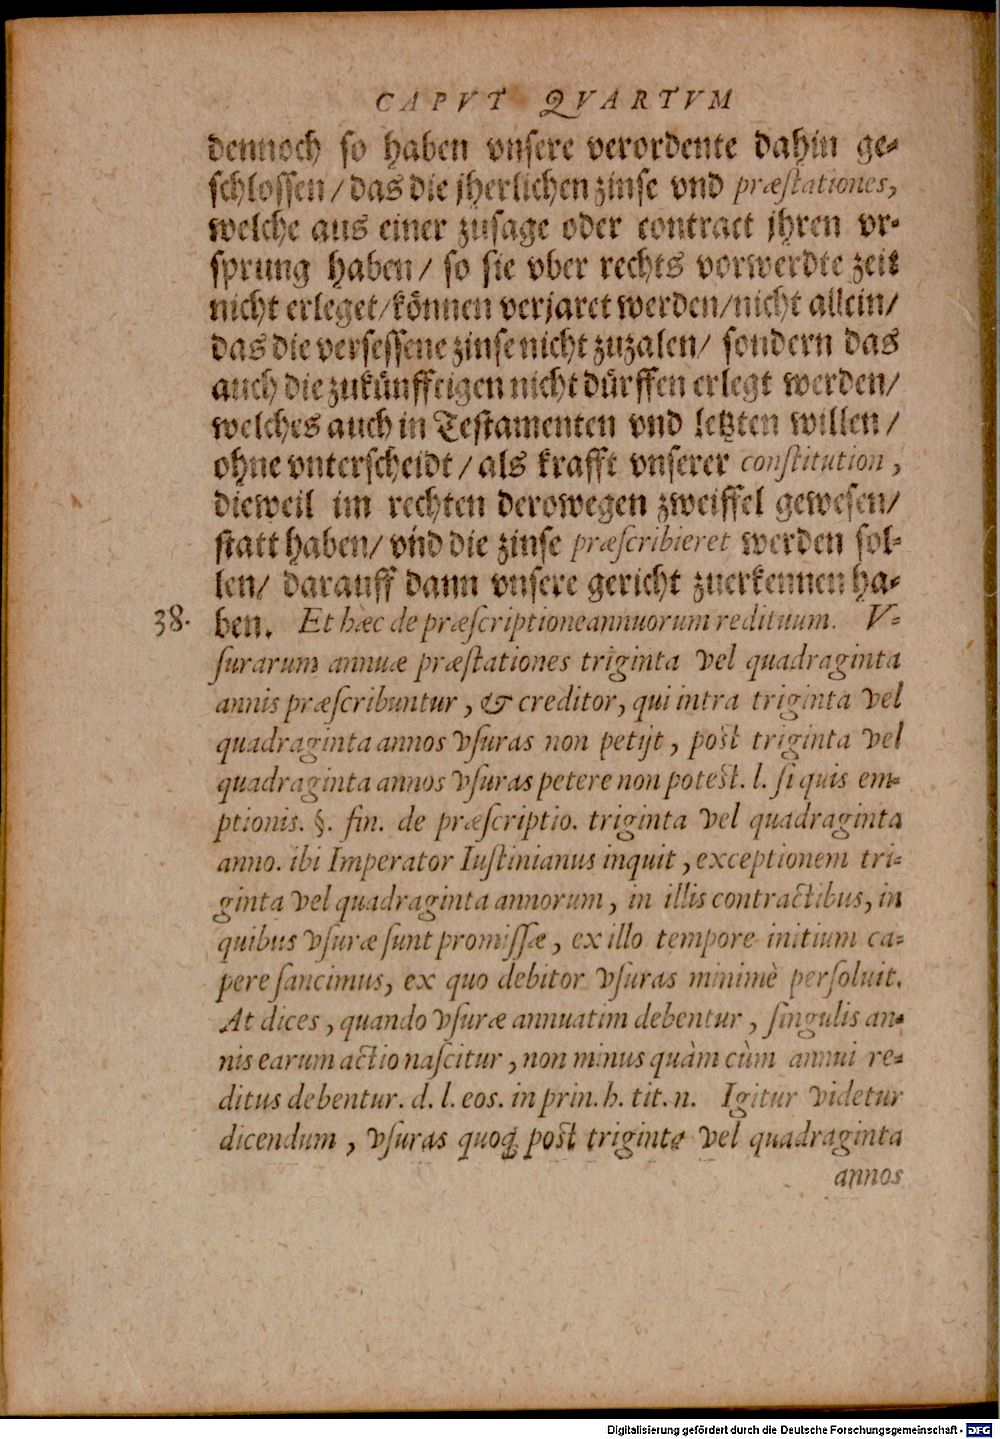 CAPVT QVARTVM
dennoch so haben vnsere verordente dahin ge-
schlossen/ das die jherlichen zinse vnd præstationes,
welche aus einer zusage oder contract jhren vr-
sprung haben/ so sie vber rechts vorwerdte zeit
nicht erleget/ können verjaret werden/ nicht allein/
das die versessene zinse nicht zuzalen/ sondern das
auch die zukünfftigen nicht dürffen erlegt werden/
welches auch in Testamenten vnd letzten willen/
ohne vnterscheidt/ als krafft vnserer constitution,
dieweil im rechten derowegen zweiffel gewesen/
statt haben/ vnd die zinse præscribieret werden sol-
len/ darauff dann vnsere gericht zuerkennen ha-
38. ben. Et hæc de præscriptione annuorum redituum. V-
surarum annuæ præstationes triginta vel quadraginta
annis præscribuntur, & creditor, qui intra triginta vel
quadraginta annos vsuras non petijt, post triginta vel
quadraginta annos vsuras petere non potest. l. si quis em-
ptionis. §. fin. de præscriptio. triginta vel quadraginta
anno. ibi Imperator Iustinianus inquit, exceptionem tri-
ginta vel quadraginta annorum, in illis contractibus, in
quibus vsuræ sunt promissæ, ex illo tempore initium ca-
pere sancimus, ex quo debitor vsuras minimè persoluit.
At dices, quando vsuræ annuatim debentur, singulis an-
nis earum actio nascitur, non minus quàm cùm annui re-
ditus debentur. d. l. eos. in prin. h. tit. n. Igitur videtur
dicendum, vsuras quoq; post triginta vel quadraginta
annos
Digitalisierung gefördert durch die Deutsche Forschungsgemeinschaft - DFG